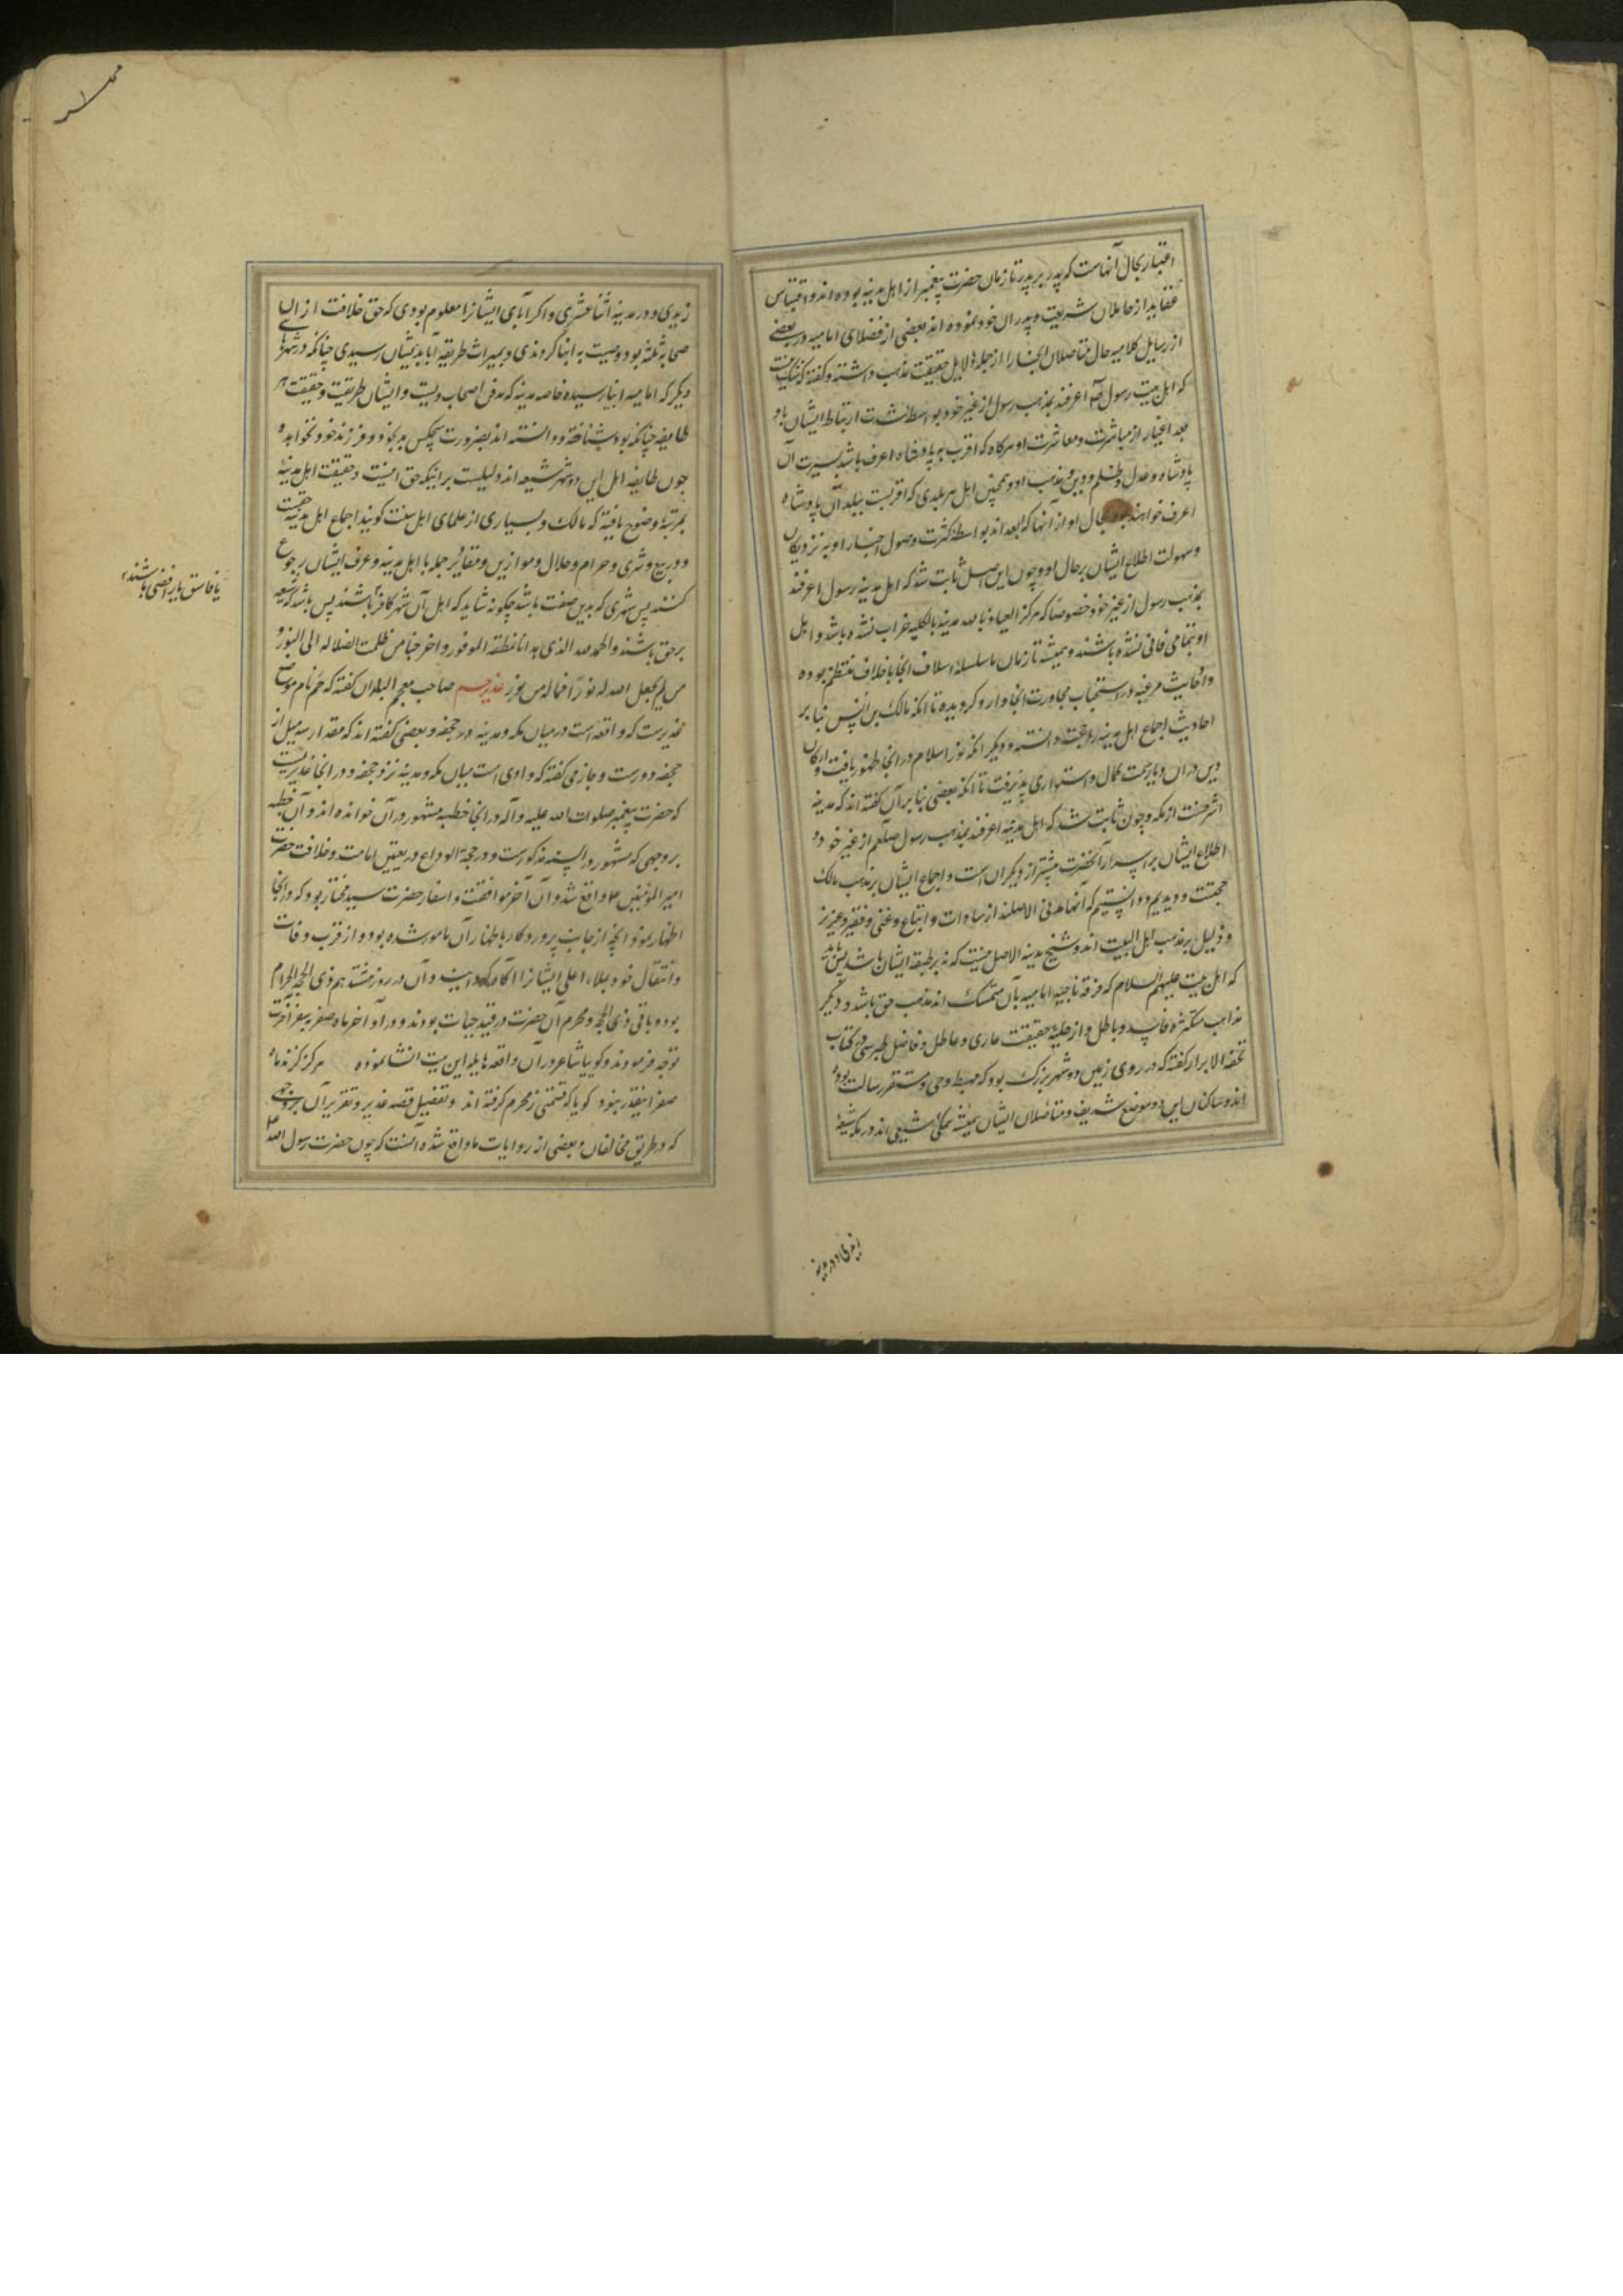 اعتبار بحال آنهاست که پدر بر پدر تا زمان حضرت پیغمبر از اهل مدینه بوده اند و اقتباس
عقاید از حاملان شریعت و پدران خود نموده اند بعضی از فضلای امامیه در بعضی
از رسایل کلامیه حال متاصلان اینجا را از جمله دلایل حقیقت مذهب داشته و گفته که شک نیست
که اهل بیت رسول اعرفند بمذهب رسول از غیر خود بواسطه شدت ارتباط ایشان باو و
بعد اغیار از مباشرت و معاشرت او هرگاه که اقرب به پادشاه اعرف باشد بسیرت آن
پادشاه و عدل و ظلم و دین و مذهب او و همچنین اهل هر بلدی که اقربست ببلد آن پادشاه
اعرف خواهند بود بحال او از آنها که ابعد اند بواسطه کثرت وصول اخبار او به نزدیکان
و سهولت اطلاع ایشان بر حال او و چون این اصل ثابت شد که اهل مدینه رسول اعرفند
بمذهب رسول از غیر خود خصوصا که هرگز العیاذ بالله مدینه بالکلیه خراب نشده باشد و اهل
او بتمامی فانی نشده باشند و همیشه تا زمان ما سلسله اسلاف آنجا باخلاف منتظم بوده
و احادیث مرغبه در استحباب مجاورت آنجا وارد گردیده تا آنکه مالک بن انس بنا بر
احادیث اجماع اهل مدینه را حجت دانسته و دیگر آنکه نور اسلام در آنجا ظهور یافت و ارکان
دین در آن دیار سمت کمال و استواری پذیرفت تا آنکه بعضی بنا بر آن گفته اند که مدینه
اشرفست از مکه و چون ثابت شد که اهل مدینه اعرفند بمذهب رسول صلعم از غیر خود و
اطلاع ایشان بر اسرار آنحضرت بیشتر از دیگران است و اجماع ایشان بر مذهب مالک
حجتست و دیدیم و دانستیم که آنها مدنی الاصلند از سادات و اتباع و غنی و فقیر و عزیز
و ذلیل بر مذهب اهل البیت اند و شیخ مدینه الاصل نیست که نه بر طبقه ایشان باشد پس باید
که اهل بیت علیهم السلام که فرقه ناجیه امامیه بآن متمسک اند مذهب حق باشد و دیگر
مذاهب متکثره فاسد و باطل و از حلیه حقیقت عاری و عاطل و فاضل طبرسی در کتاب
تحفه الابرار گفته که در روی زمین دو شهر بزرگ بود که مهبط وحی و مستقر رسالت بوده
اند و ساکنان این دو موضع شریف و متاصلان ایشان همیشه بمکه شیعی اند در مکه شیعه
زیدی و در مدینه
زیدی و در مدینه اثنا عشری و اگر آبای ایشان را معلوم بودی که حق خلافت از آن
صحابه ثلثه بود وصیت به ابنا کردندی و بمیراث طریقه آبا بدیشان رسیدی چنانکه در شهرهای
دیگر که امامیه آنجا نرسیده خاصه مدینه که مدفن اصحاب ویست و ایشان طریقت و حقیقت هر
طایفه چنانکه بود شناخته و دانسته اند بضرورت هیچکس بد بخود و فرزند خود نخواهد و
چون طایفه اهل این دو شهر شیعه اند دلیلست بر اینکه حق اینست و حقیقت اهل مدینه
بمرتبه وضوح یافته که مالک و بسیاری از علمای اهل سنت گویند اجماع اهل مدینه حجتست
و در بیع و شری و حرام و حلال و موازین و مقادیر جمله با اهل مدینه و عرف ایشان رجوع
کنند پس شهری که بدین صفت باشد چگونه شاید که اهل آن شهر کافر باشند پس باشد که شیعه
یا فاسق یا رافضی باشند
بر حق باشند و الحمد لله الذی هدانا بلطفه الموفور و اخرجنا من ظلمت الضلاله الی النور و
من لم یجعل الله له نورا فما له من نور غدیر خم صاحب معجم البلدان گفته که خم نام موضع
غدیرست که واقعه است در میان مکه و مدینه در جحفه و بعضی گفته اند که مقدار سه میل از
جحفه دورست و حازمی گفته که وادی است میان مکه و مدینه نزد جحفه و در آنجا غدیریست
که حضرت پیغمبر صلوات الله علیه و آله در آنجا خطبه مشهور در آن خوانده اند و آن خطبه
بر وجهی که مشهور در السنه مذکورست و در حجة الوداع در تعیین امامت و خلافت حضرت
امیر المؤمنین ع واقع شد و آن آخر موافقت و اسفار حضرت سید مختار بود که در آنجا
اظهار نمود آنچه از جانب پروردگار باظهار آن مامور شده بود و از قرب وفات
و انتقال خود بملاء اعلی ایشانرا آگاه گردانید و آن در روز هشتدهم ذی الحجه الحرام
بود و باقی ذی الحجه و محرم آن حضرت در قید حیات بودند و در آواخر ماه صفر به سفر آخرت
توجه فرمودند و گویا شاعر در آن واقعه هایله این بیت انشا نموده هرگز گزند ماه
صفر اینقدر نبود گویا که قسمتی ز محرم گرفته اند و تفصیل قصه غدیر و تقریر آن بر وجهی
که در طریق مخالفان و بعضی از روایات ما واقع شده آنست که چون حضرت رسول الله